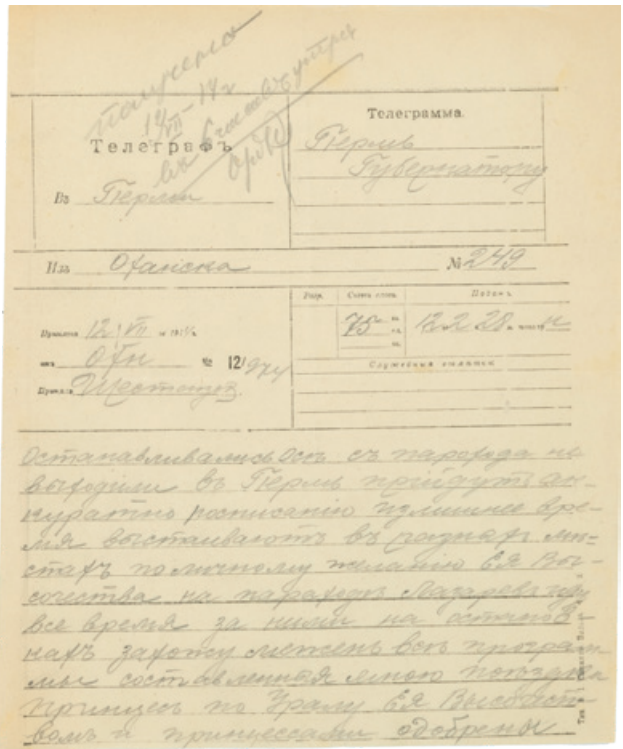 получено
12/VII - 14 г
въ 6 часовъ утра
Телеграфъ
Въ Перми
Телеграмма.
Пермь
Губернатору
Изъ Оханска
№ 249
Разр.
Счетъ словъ.
Подана.
75
12 2 28
Принята 12/VII
12
Принялъ
Служебныя отмѣтки
останавливались Осѣ съ парохода не
выходили въ Пермь прийдутъ ак-
куратно росписанію излишнее вре-
мя выстаиваютъ въ разныхъ мѣ-
стахъ по личному желанію Ея Вы-
сочества на пароходѣ Лазаревъ иду
все время за ними на останов-
кахъ захожу всѣ програм
мы составленная мною поѣздки
принцессъ по Уралу Ея Высочест
вомъ и принцессами одобрены